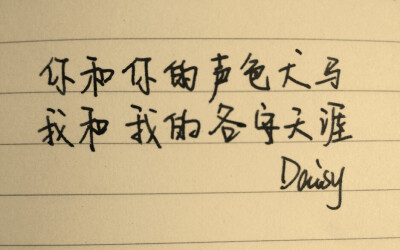 你和你的声色犬马
我和我的各安天涯
Daisy